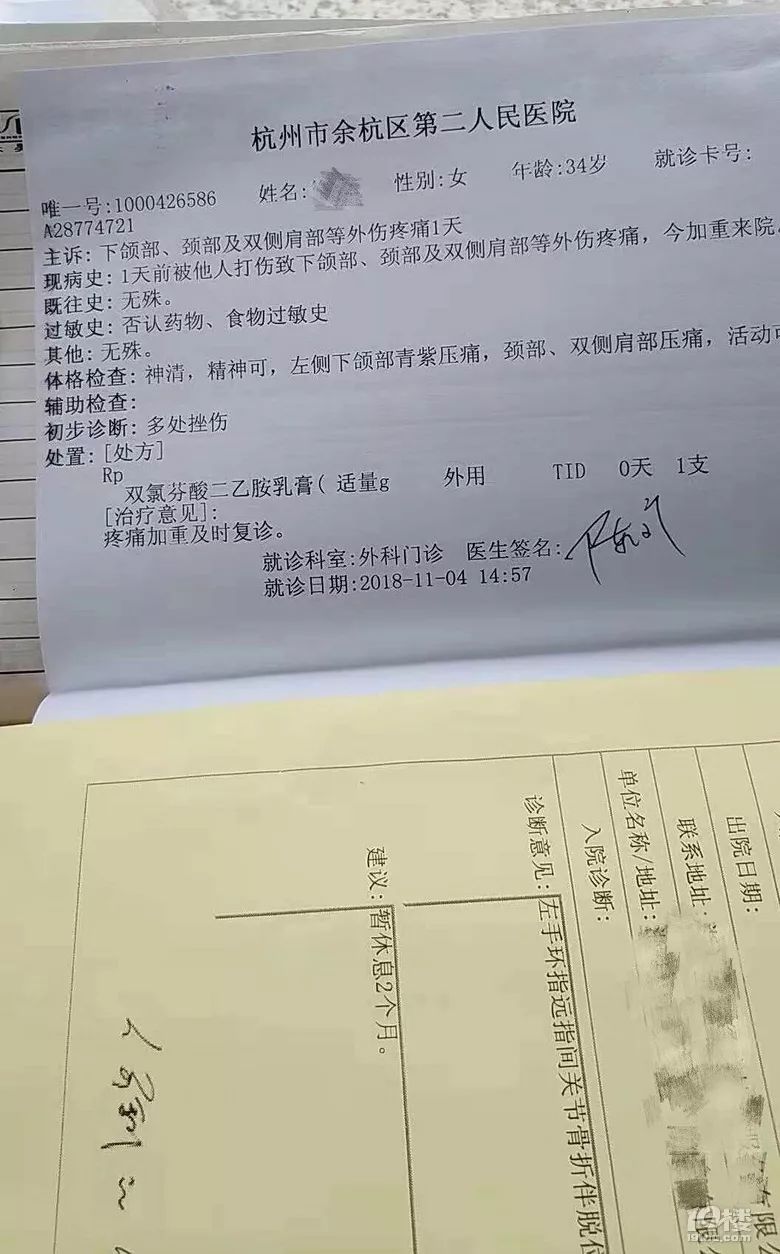 杭州市余杭区第二人民医院
唯一号:1000426586 姓名: 性别:女 年龄:34岁 就诊卡号:
A28774721
主诉: 下颌部、颈部及双侧肩部等外伤疼痛1天
现病史: 1天前被他人打伤致下颌部、颈部及双侧肩部等外伤疼痛，今加重来院。
既往史: 无殊。
过敏史: 否认药物、食物过敏史
其他: 无殊。
体格检查: 神清，精神可，左侧下颌部青紫压痛，颈部、双侧肩部压痛，活动可
辅助检查:
初步诊断: 多处挫伤
处置: [处方]
Rp
双氯芬酸二乙胺乳膏( 适量g 外用 TID 0天 1支
[治疗意见]:
疼痛加重及时复诊。
就诊科室:外科门诊 医生签名:
就诊日期:2018-11-04 14:57
出院日期:
联系地址:
单位名称/地址:
有限公
入院诊断:
诊断意见: 左手环指远指间关节骨折伴脱位
建议: 暂休息2个月。
19楼